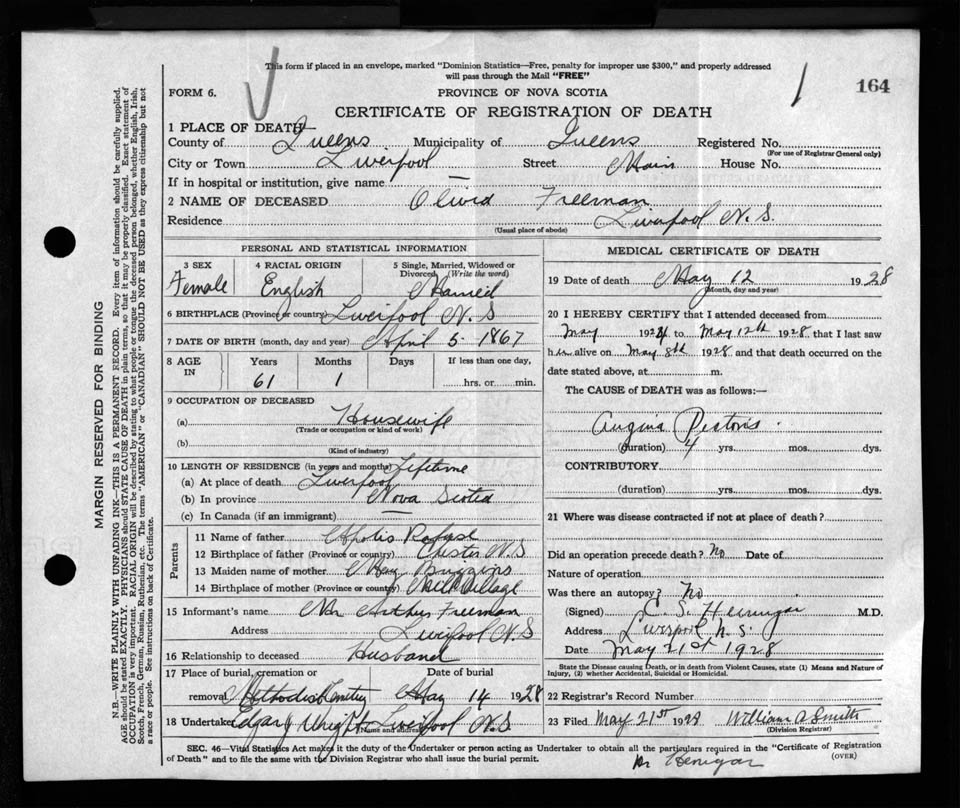 This form if placed in an envelope, marked "Dominion Statistics—Free, penalty for improper use $300," and properly addressed
will pass through the Mail "FREE"
164
FORM 6.
PROVINCE OF NOVA SCOTIA
CERTIFICATE OF REGISTRATION OF DEATH
1 PLACE OF DEATH—
County of Queens Municipality of Queens Registered No.
(For use of Registrar General only)
City or Town Liverpool Street Main House No.
If in hospital or institution, give name —
2 NAME OF DECEASED Olivia Freeman
Residence Liverpool N.S.
(Usual place of abode)
PERSONAL AND STATISTICAL INFORMATION
3 SEX Female
4 RACIAL ORIGIN English
5 Single, Married, Widowed or Divorced (Write the word) Married
6 BIRTHPLACE (Province or country) Liverpool N.S
7 DATE OF BIRTH (month, day and year) April 5 1867
8 AGE IN Years 61 Months 1 Days If less than one day, hrs. or min.
9 OCCUPATION OF DECEASED
(a) Housewife
(Trade or occupation or kind of work)
(b)
(Kind of industry)
10 LENGTH OF RESIDENCE (in years and months) Lifetime
(a) At place of death Liverpool
(b) In province Nova Scotia
(c) In Canada (if an immigrant) —
Parents
11 Name of father
12 Birthplace of father (Province or country) Chester N.S
13 Maiden name of mother May
14 Birthplace of mother (Province or country) Mill Village
15 Informant's name Mr Arthur Freeman
Address Liverpool N.S
16 Relationship to deceased Husband
17 Place of burial, cremation or removal Methodist Cemetery Date of burial May 14 1928
18 Undertaker Edgar J Wright Liverpool N.S
(Name and address)
MEDICAL CERTIFICATE OF DEATH
19 Date of death May 12 1928
(Month, day and year)
20 I HEREBY CERTIFY that I attended deceased from
May 1924 to May 12th 1928 that I last saw
her alive on May 8th 1928 and that death occurred on the
date stated above, at m.
The CAUSE of DEATH was as follows:—
Angina Pectoris.
(duration) 4 yrs. mos. dys.
CONTRIBUTORY
(duration) yrs. mos. dys.
21 Where was disease contracted if not at place of death?
Did an operation precede death? No Date of
Nature of operation
Was there an autopsy? No
(Signed) C. S. Hennigar M.D.
Address Liverpool N.S.
Date May 21st 1928
State the Disease causing Death, or in death from Violent Causes, state (1) Means and Nature of
Injury, (2) whether Accidental, Suicidal or Homicidal.
22 Registrar's Record Number
23 Filed May 21st 1928 William A Smith
(Division Registrar)
SEC. 46—Vital Statistics Act makes it the duty of the Undertaker or person acting as Undertaker to obtain all the particulars required in the "Certificate of Registration
of Death" and to file the same with the Division Registrar who shall issue the burial permit.
(OVER)
Dr Henigar
MARGIN RESERVED FOR BINDING
N.B.—WRITE PLAINLY WITH UNFADING INK—THIS IS A PERMANENT RECORD. Every item of information should be carefully supplied.
AGE should be stated EXACTLY. PHYSICIANS should STATE CAUSE OF DEATH in plain terms, so that it may be properly classified. Exact statement of
OCCUPATION is very important. RACIAL ORIGIN will be described by stating to what people or tongue the deceased person belonged, whether English, Irish,
Scotch, French, German, Russian, Ruthenian, etc. The terms "AMERICAN" or "CANADIAN" SHOULD NOT BE USED as they express citizenship but not
a race or people. See instructions on back of Certificate.